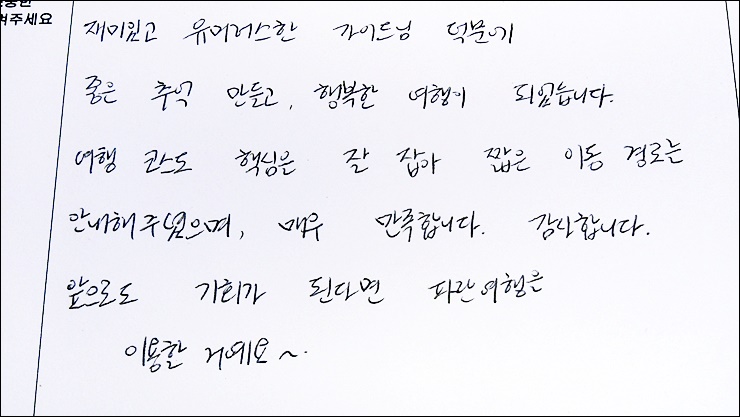 겨주세요
재미있고 유머러스한 가이드님 덕분에
좋은 추억 만들고, 행복한 여행이 되었습니다.
여행 코스도 핵심은 잘 잡아 짧은 이동 경로는
안내해주셨으며, 매우 만족합니다. 감사합니다.
앞으로도 기회가 된다면 파란여행은
이용할 거예요~.